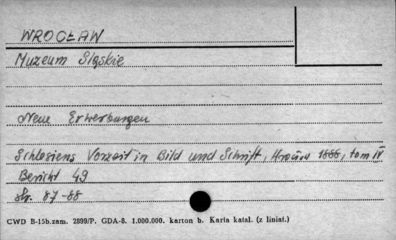 WROCŁAW
Muzeum Śląskie
Neue Erwerbungen
Schlesiens Vorzeit in Bild und Schrift, 1886, tom IV
Bericht 49
Str. 87-88
CWD B-15b.zam. 2899/P. GDA-8. 1.000.000. karton b. Karta katal. (z liniat.)